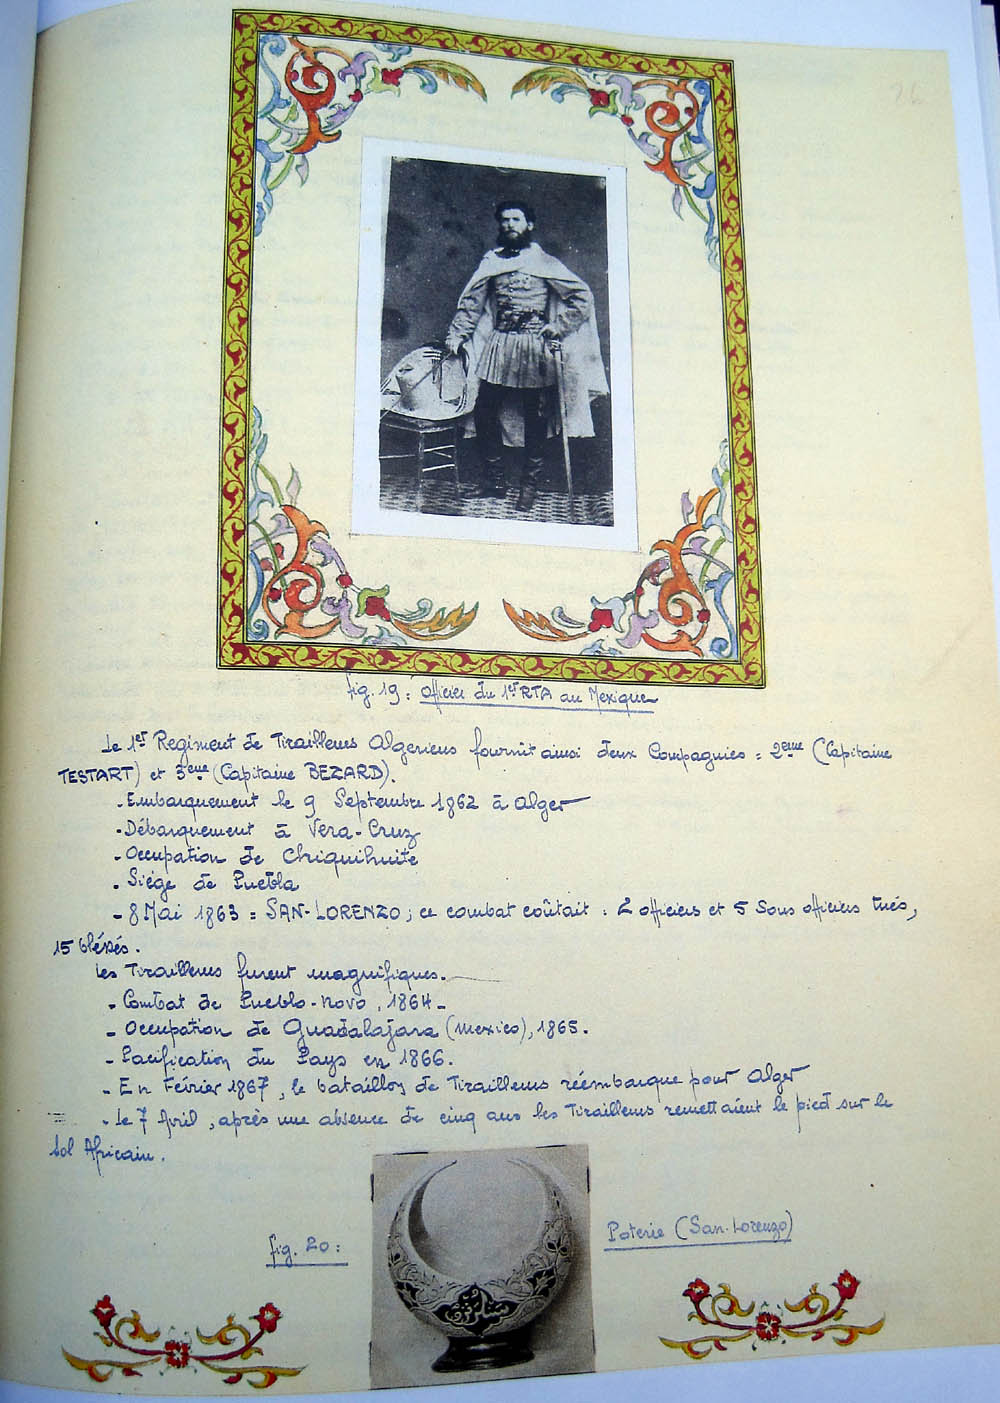 26
fig. 19 : officier du 1er RTA au Mexique
Le 1er Regiment de Tirailleurs Algeriens fournit aussi deux Compagnies : 2eme (Capitaine
TESTART) et 3eme (Capitaine BEZARD).
- Embarquement le 9 Septembre 1862 à Alger
- Débarquement à Vera-Cruz
- Occupation de Chiquihuite
- Siége de Puebla
- 8 Mai 1863 : SAN-LORENZO ; ce combat coûtait : 2 officiers et 5 Sous officiers tués,
15 bléssés.
Les Tirailleurs furent magnifiques.
- Combat de Pueblo-Novo, 1864 -
- Occupation de Guadalajara (Mexico), 1865.
- Pacification du Pays en 1866.
- En Février 1867, le bataillon de Tirailleurs réembarque pour Alger
- Le 7 Avril, après une absence de cinq ans les Tirailleurs remettaient le pied sur le
Sol Africain.
fig. 20 :
Poterie (San-Lorenzo)